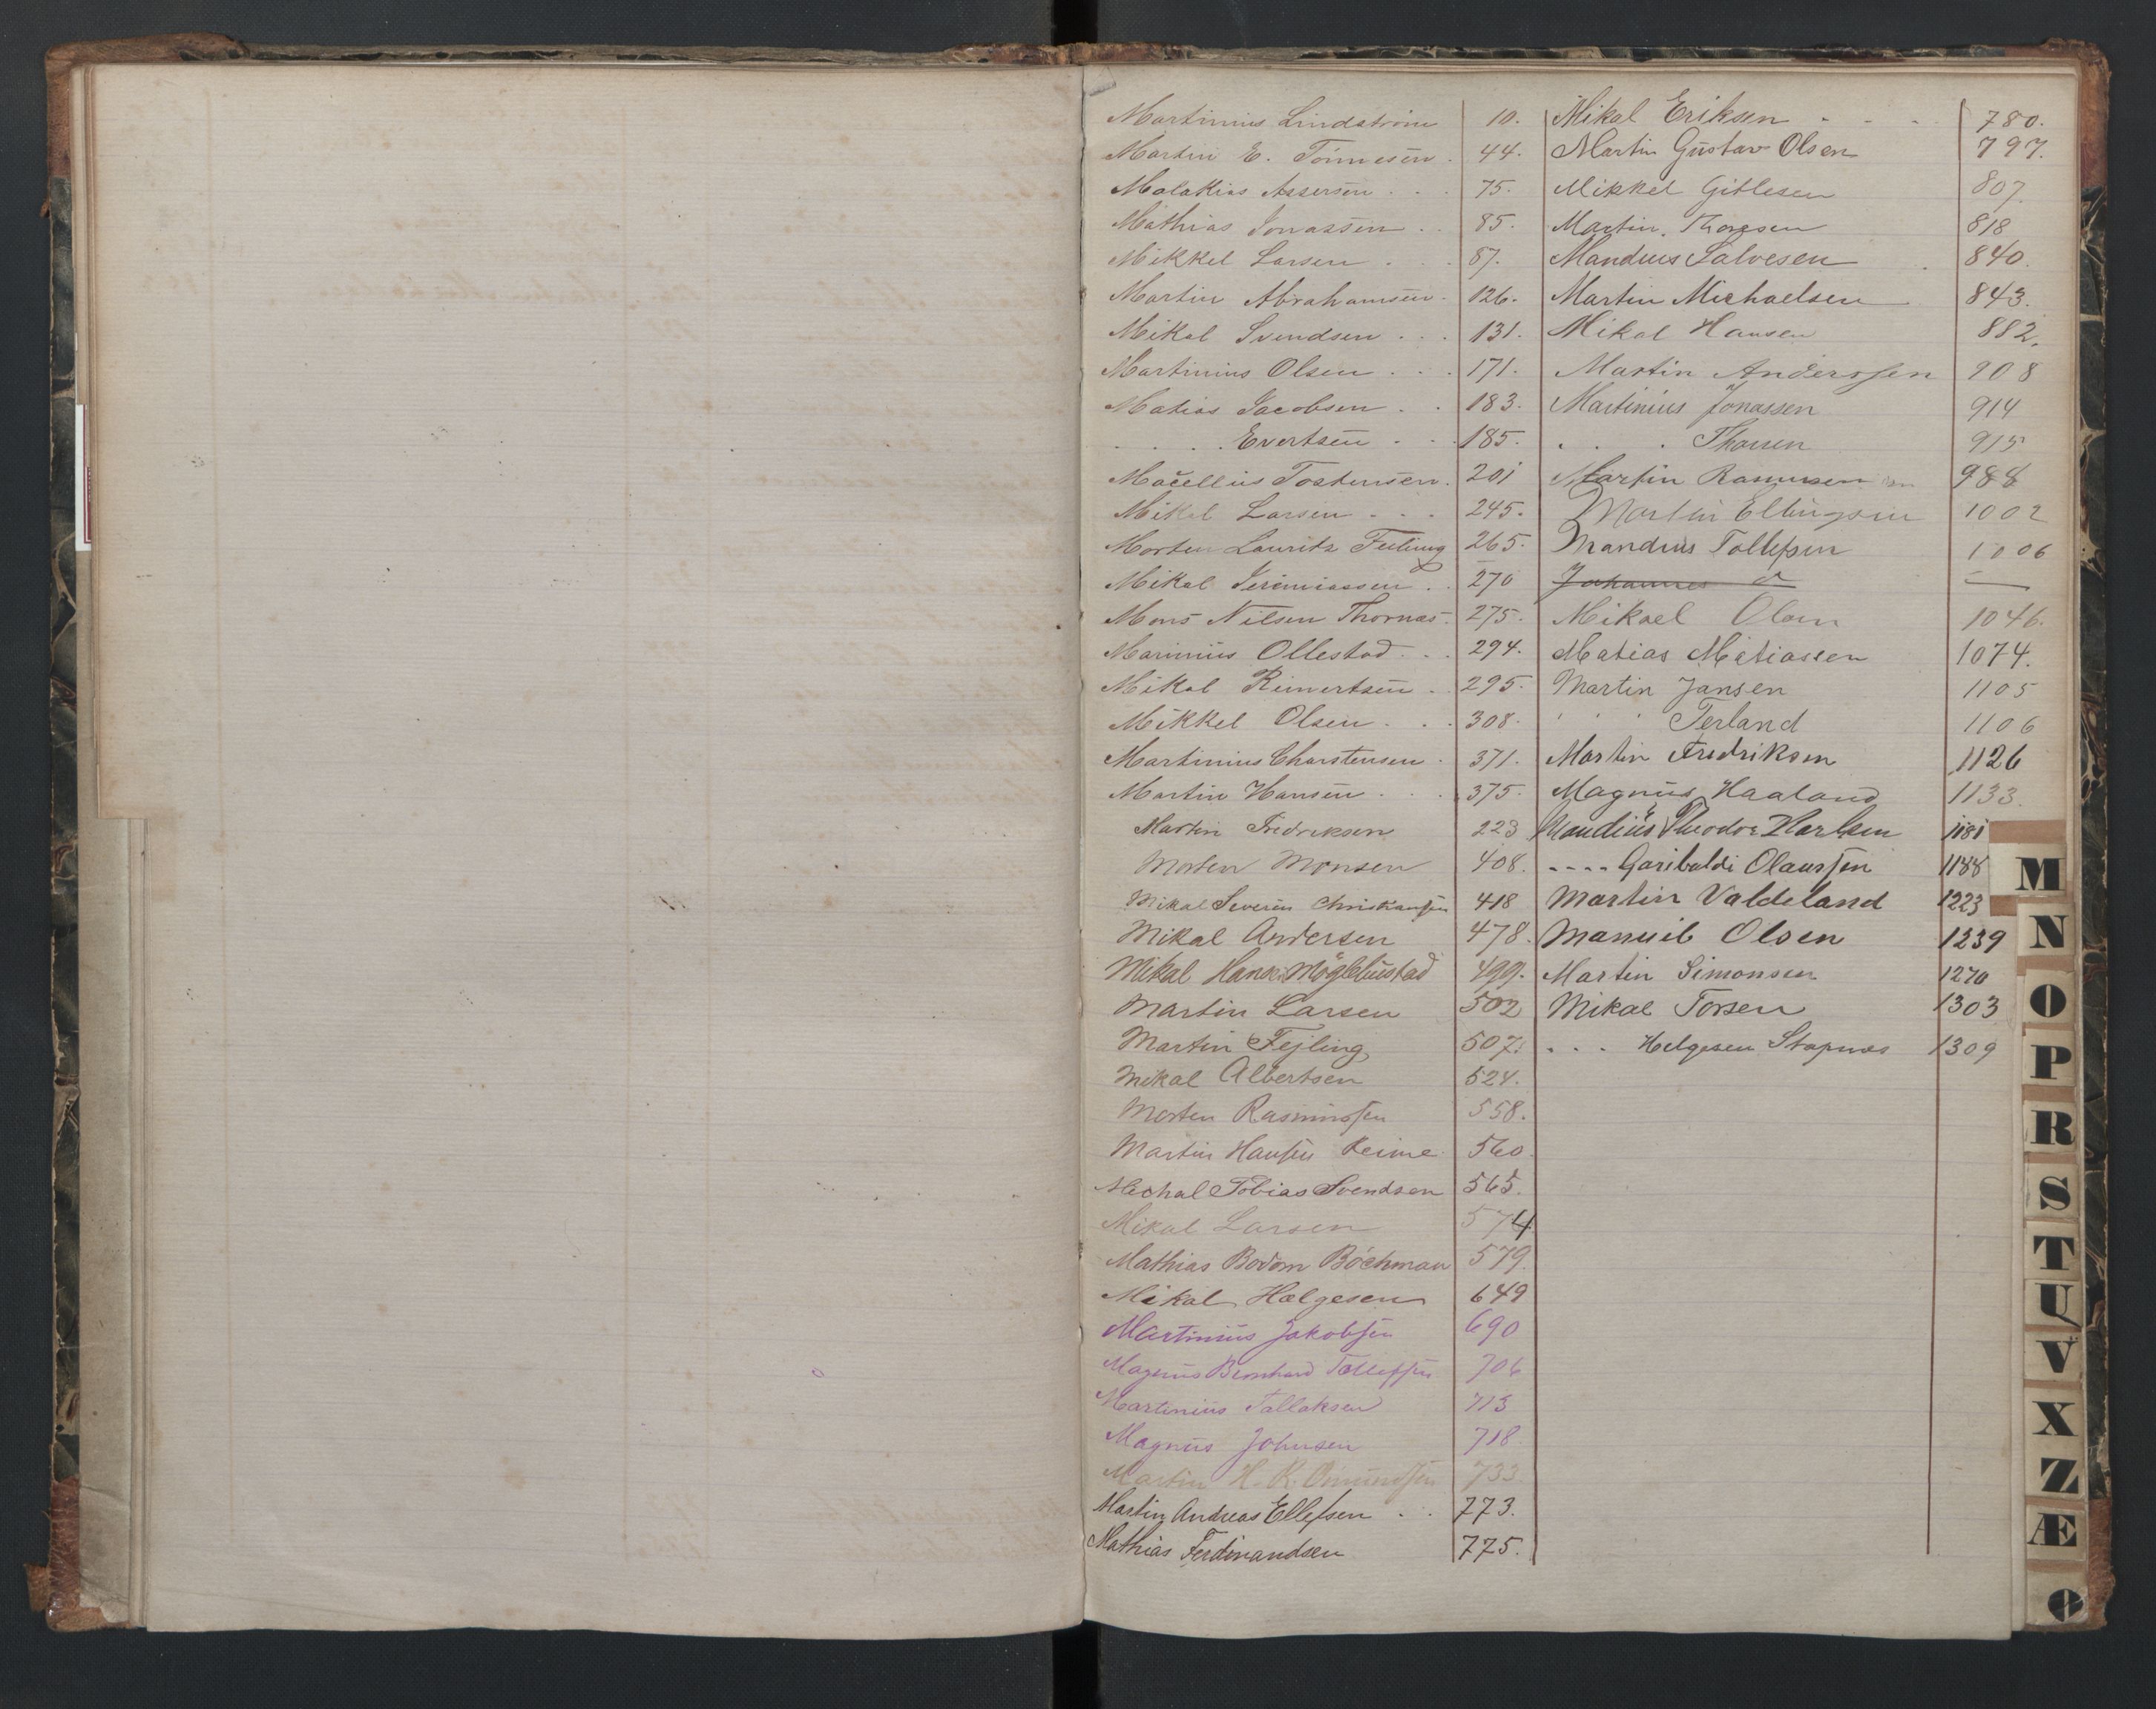 Martinius Lindström 10.
Martin E. Tönnesen. 44.
Malakias Assersen . . . 75.
Mathias Jonassen . . 85.
Mikkel Larsen . . . 87.
Martin Abrahamsen. 126.
Mikal Svendsen . . . 131.
Martinius Olsen . . . 171.
Matias Jacobsen . . 183.
. . . . Evertsen . . . 185.
Macellius Tostensen. 201
Mikal Larsen . . . 245.
Morten Lauritz Feiling 265.
Mikal Jeremiassen . 270
Mons Nilsen Thornæs. 275.
Marinius Ollestad . . . 294.
Mikal Reinertsen . 295.
Mikkel Olsen . . . 308.
Martinius Charstensen . 371.
Martin Hansen . . . 375.
Martin Fredriksen 223
Morten Monsen 408.
Mikal Severin Christiansen 418
Mikal Andersen 478.
Mikal Hansen Møglebustad 499.
Martin Larsen 502
Martin Fejling 507.
Mikal Albertsen 524.
Morten Rasmussen 558.
Martin Hansen Reime 560.
Mechal Tobias Svendsen 565.
Mikal Larsen 574.
Mathias Bodom Böchman 579.
Mikal Hælgesen 649
Martinius Jakobsen 690
Magnus Bernhard Tollefsen 706
Martinius Tallaksen 713
Magnus Johnsen 718
Martin H. K. Omundsen 733.
Martin Andreas Ellefsen . . 773.
Mathias Ferdinandsen 775.
Mikal Eriksen - - - 780.
Martin Gustav Olsen 797.
Mikkel Gitlesen 807.
Martin Thoresen 818
Mandius Salvesen . 840.
Martin Michaelsen 843.
Mikal Hansen 882.
Martin Anderssen 908
Martinius Jonassen 914
. . . Thorsen 915
Martin Rasmussen 988
Martin Ellingsen 1002
Mandius Tollefsen 1006
Johannes
Mikael Olsen 1046.
Matias Matiassen 1074.
Martin Jansen 1105
' ' ' Terland 1106
Martin Fredriksen 1126
Magnus Haaland 1133.
Mandius Theodor Karlsen 1181
- - - - Garibaldi Olaussen 1188
Martin Valdeland 1223
Manuel Olsen 1239
Martin Simonsen 1270
Mikal Torsen 1303
. . . Helgesen Stapnæs 1309
M
N
O
P
R
S
T
U
V
X
Z
Æ
Ø